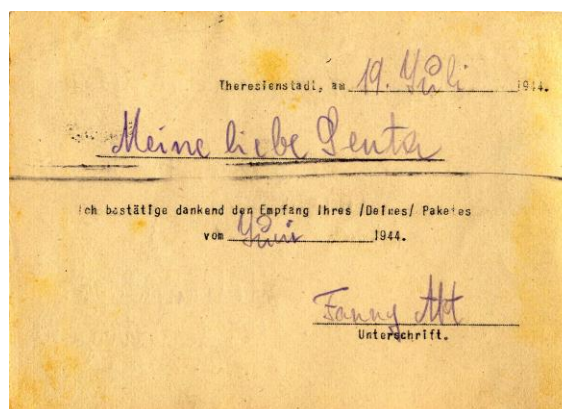 Theresienstadt, am 19. Juli 1944.
Meine liebe Senta
Ich bestätige dankend den Empfang Ihres /Deines/ Paketes
vom Juni 1944.
Fanny Alt
Unterschrift.